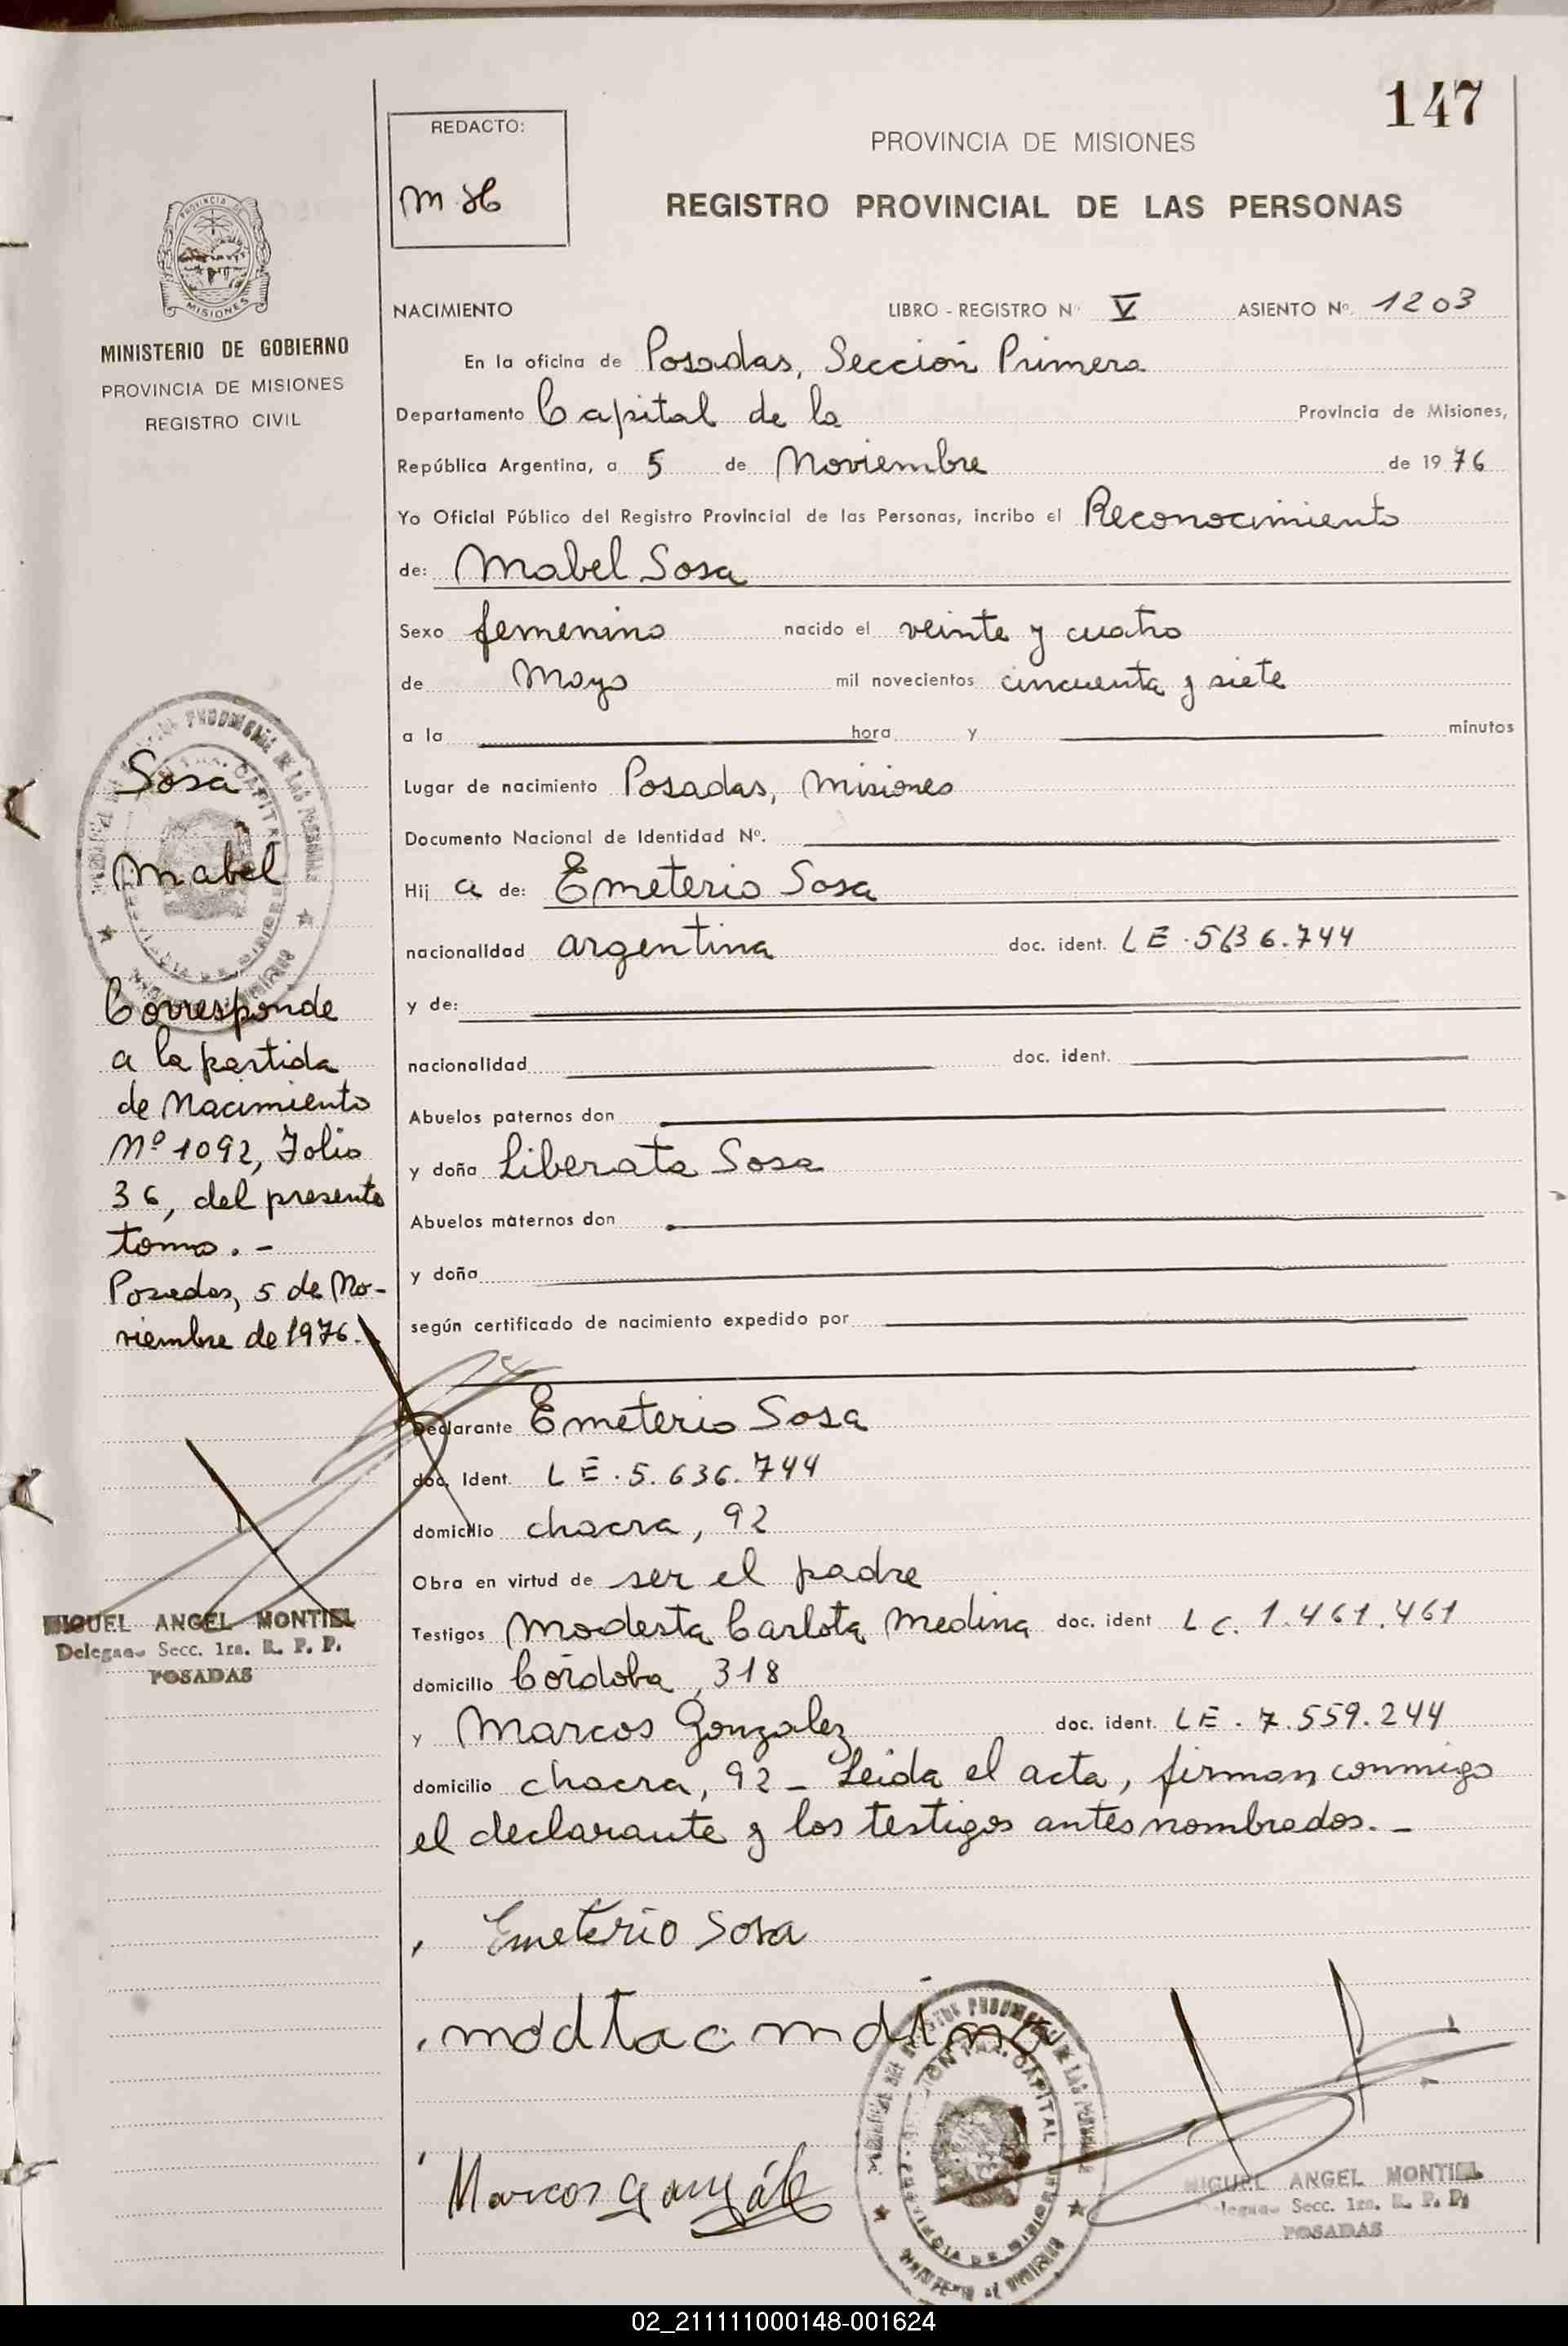 147
REDACTO:
M.H
PROVINCIA DE MISIONES
REGISTRO PROVINCIAL DE LAS PERSONAS
MISIONES
MINISTERIO DE GOBIERNO
PROVINCIA DE MISIONES
REGISTRO CIVIL
NACIMIENTO LIBRO - REGISTRO Nº V ASIENTO Nº 1203
En la oficina de Posadas, Sección Primera
Departamento Capital de la Provincia de Misiones,
República Argentina, a 5 de Noviembre de 1976
Yo Oficial Público del Registro Provincial de las Personas, incribo el Reconocimiento
de: Mabel Sosa
Sexo femenino nacido el veinte y cuatro
de Mayo mil novecientos cincuenta y siete
a la hora y minutos
Lugar de nacimiento Posadas, Misiones
Documento Nacional de Identidad Nº.
Hij a de: Emeterio Sosa
nacionalidad argentina doc. ident. LE.5636.744
y de:
nacionalidad doc. ident.
Abuelos paternos don
y doña Liberata Sosa
Abuelos maternos don
y doña
según certificado de nacimiento expedido por
Declarante Emeterio Sosa
doc. Ident. LE.5.636.744
domicilio chacra, 92
Obra en virtud de ser el padre
Testigos Modesta Carlota Medina doc. ident LC. 1.461.461
domicilio Córdoba, 318
y Marcos Gonzalez doc. ident. LE. 7.559.244
domicilio chacra, 92 _ Leida el acta, firman conmigo
el declarante y los testigos antes nombrados. _
Sosa
Mabel
Corresponde
a la partida
de Nacimiento
Nº 1092, Folio
36, del presente
tomo. -
Posadas, 5 de No-
viembre de 1976.
MIGUEL ANGEL MONTIEL
Delegado Secc. 1ra. R. P. P.
POSADAS
Emeterio Sosa
modtac mdina
Marcos González
MIGUEL ANGEL MONTIEL
Delegado Secc. 1ra. R. P. P.
POSADAS
02_211111000148-001624